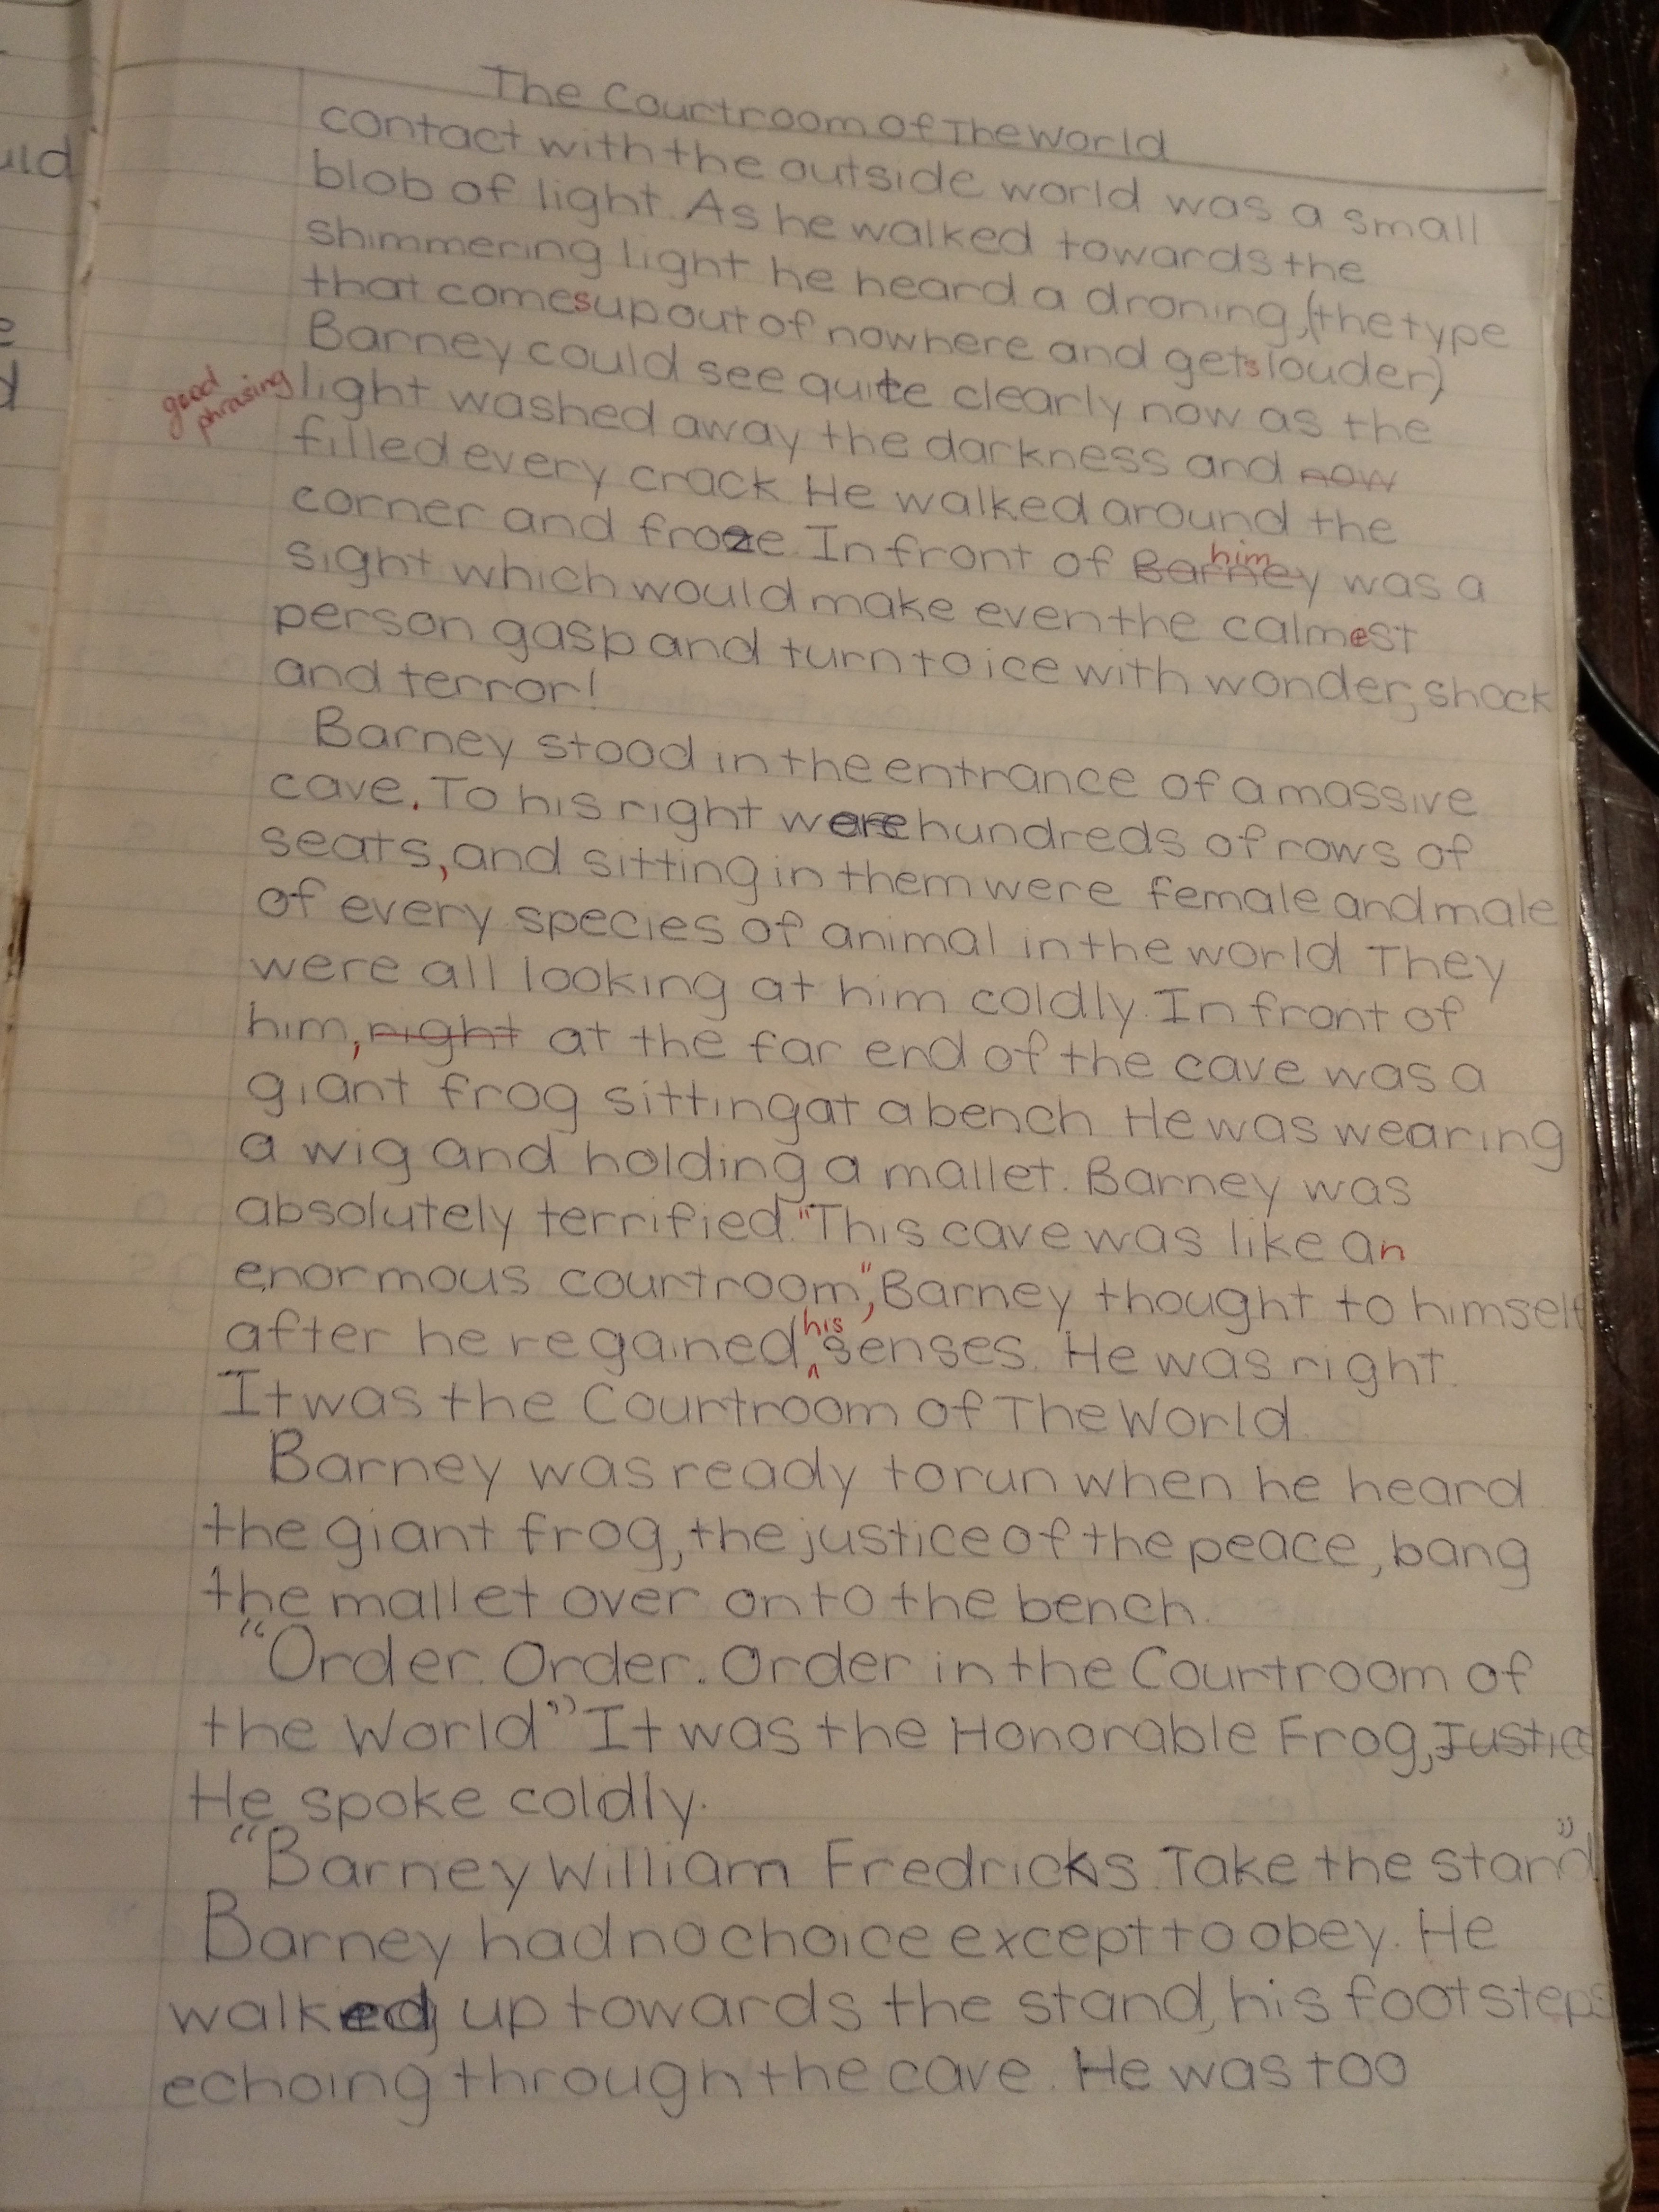 The Courtroom Of The World
contact with the outside world was a small
blob of light. As he walked towards the
shimmering light he heard a droning, (the type
that comes up out of nowhere and gets louder)
Barney could see quite clearly now as the
good phrasing
light washed away the darkness and now
filled every crack. He walked around the
corner and froze. In front of Barney him was a
sight which would make even the calmest
person gasp and turn to ice with wonder, shock
and terror!
Barney stood in the entrance of a massive
cave. To his right were hundreds of rows of
seats, and sitting in them were female and male
of every species of animal in the world. They
were all looking at him coldly. In front of
him, right at the far end of the cave was a
giant frog sitting at a bench. He was wearing
a wig and holding a mallet. Barney was
absolutely terrified. "This cave was like an
enormous courtroom", Barney thought to himself
after he regained his senses. He was right.
It was the Courtroom of The World.
Barney was ready to run when he heard
the giant frog, the justice of the peace, bang
the mallet over onto the bench.
"Order. Order. Order in the Courtroom of
the World" It was the Honorable Frog, Justice
He spoke coldly.
"Barney William Fredricks. Take the stand"
Barney had no choice except to obey. He
walked up towards the stand, his footsteps
echoing through the cave. He was too
uld
e
d